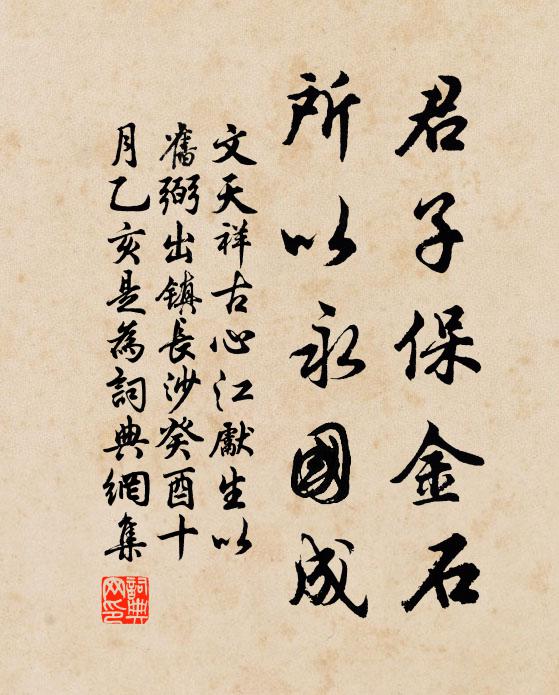 君子保金石
所以永國成
文天祥古心江獻生以
舊弼出鎮長沙癸酉十
月乙亥是為詞典網集
詞典
网印